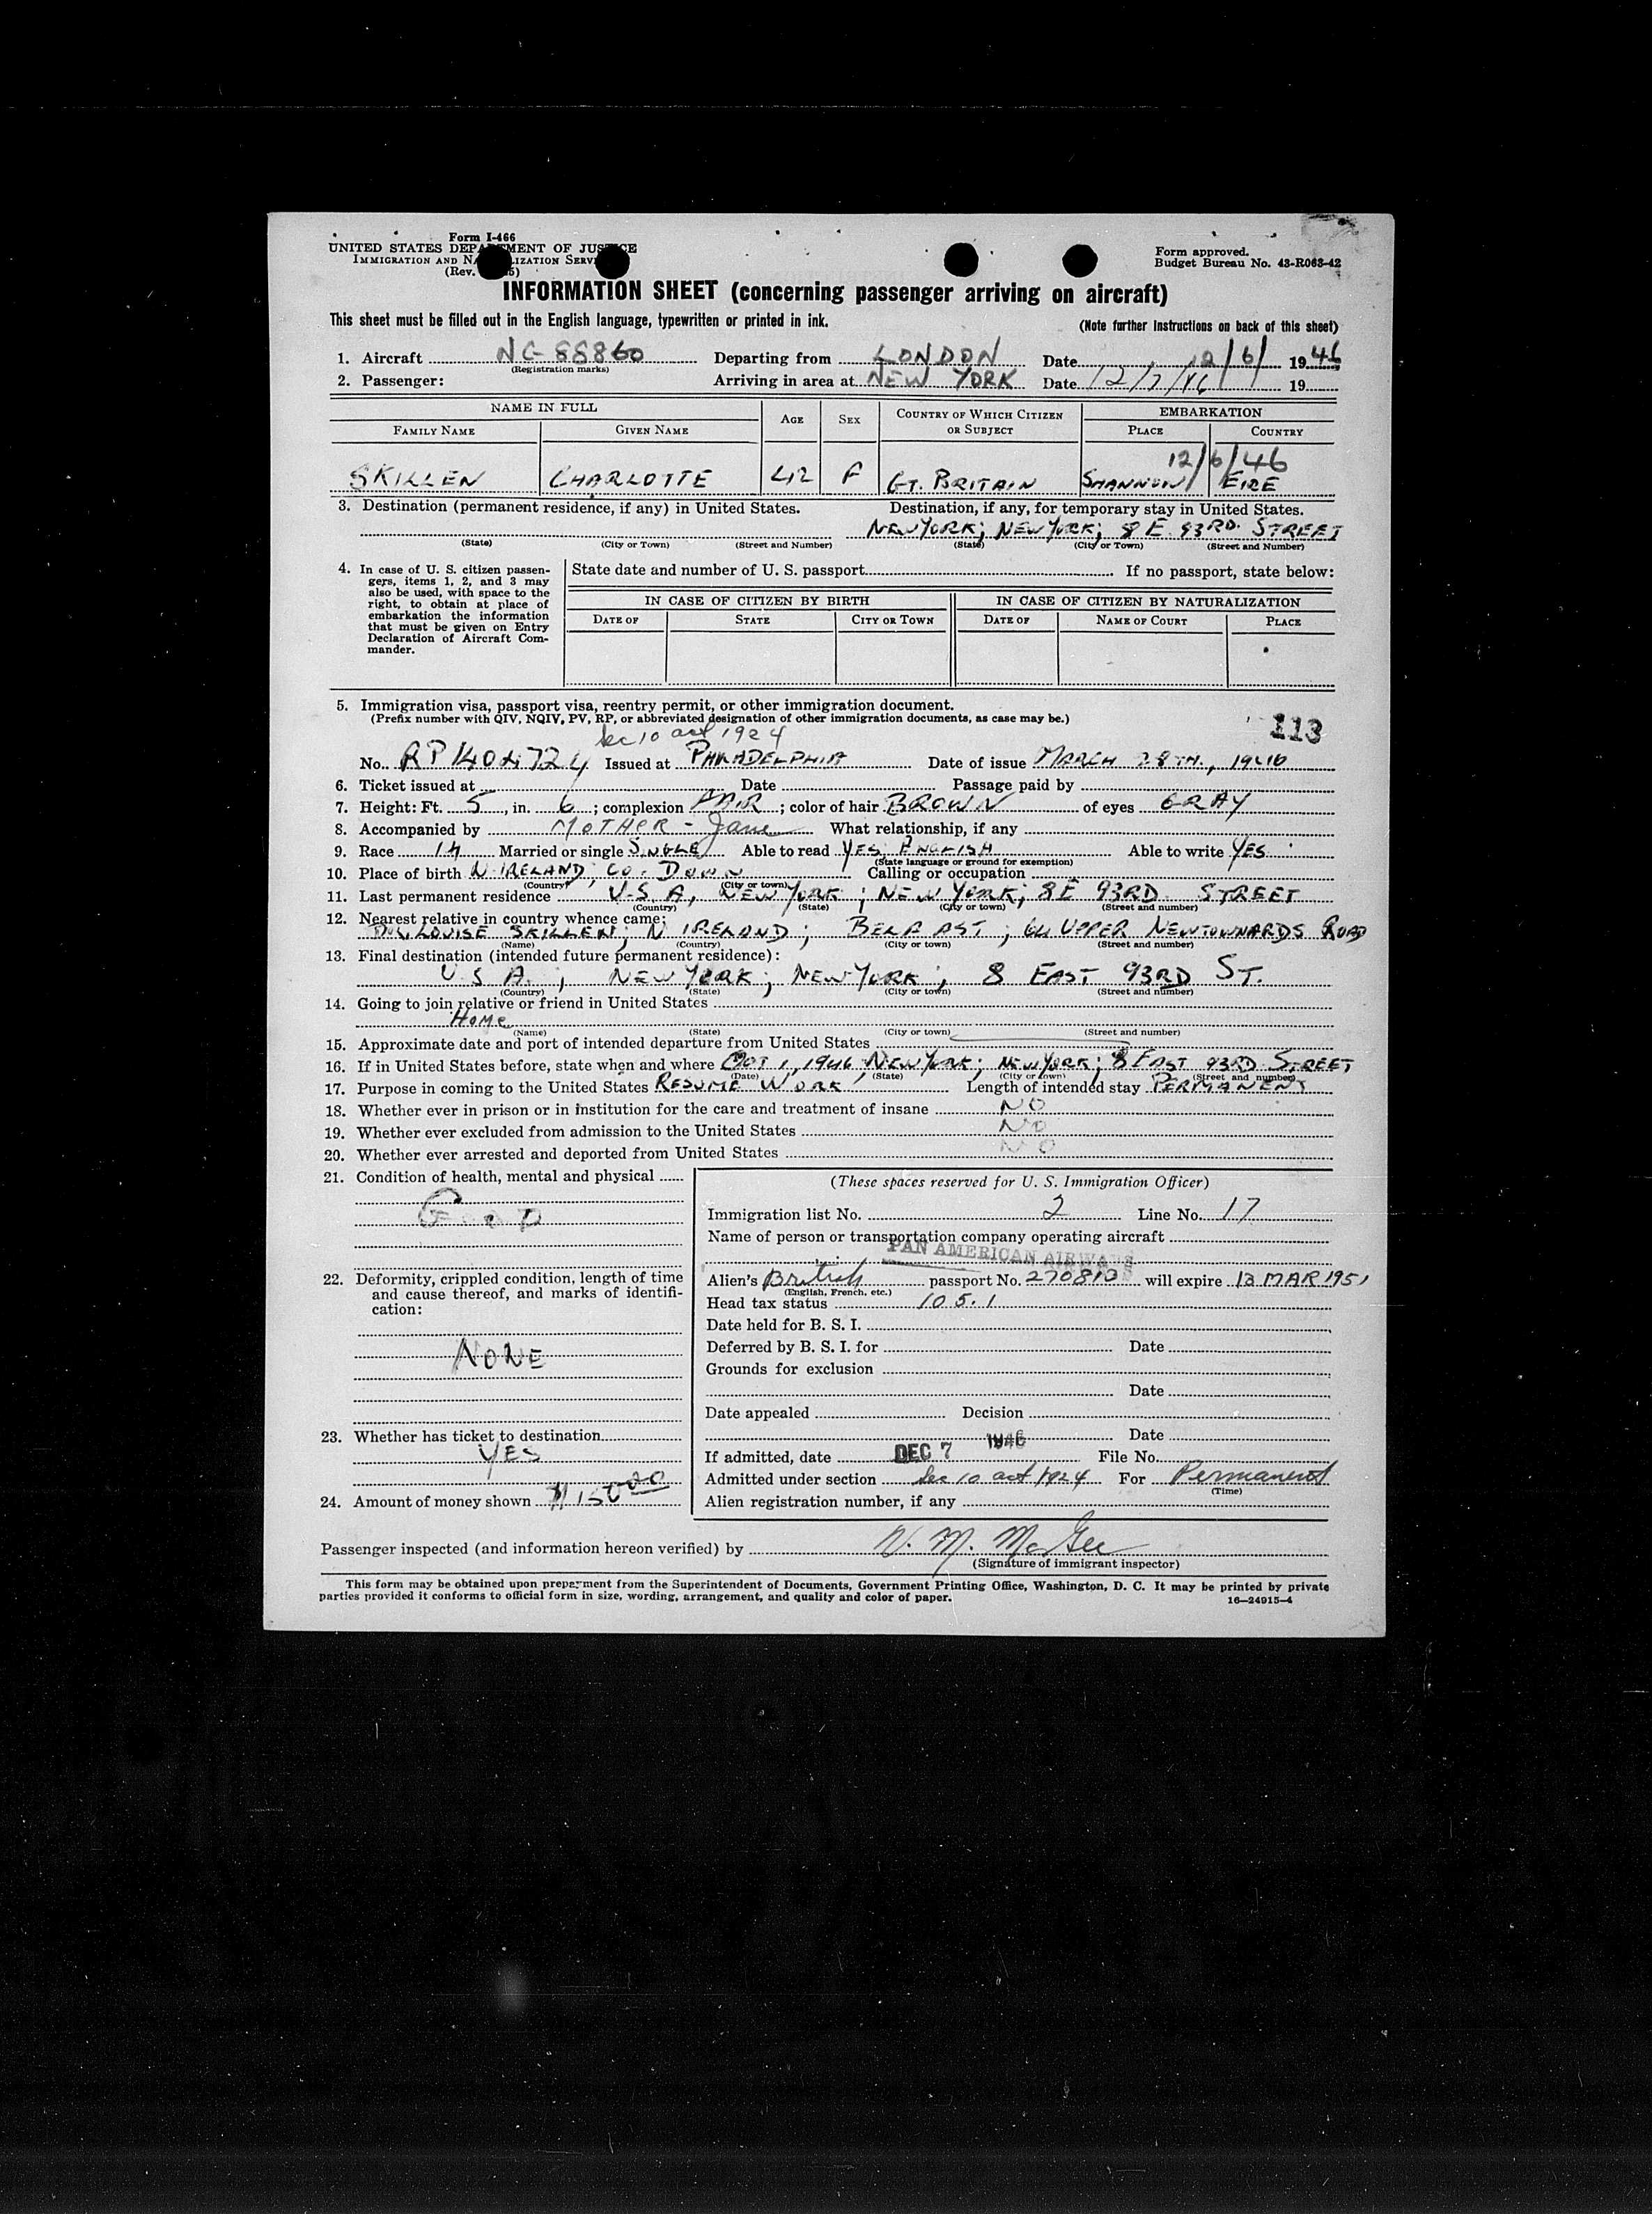 Form I-466
UNITED STATES DEPARTMENT OF JUSTICE
IMMIGRATION AND NATURALIZATION SERVICE
(Rev.
Form approved.
Budget Bureau No. 43-R063-42
INFORMATION SHEET (concerning passenger arriving on aircraft)
This sheet must be filled out in the English language, typewritten or printed in ink.
(Note further instructions on back of this sheet)
1. Aircraft NC 88860 Departing from LONDON Date 12/6/ 1946
(Registration marks)
2. Passenger: Arriving in area at NEW YORK Date 12/7/46 19
NAME IN FULL AGE SEX COUNTRY OF WHICH CITIZEN OR SUBJECT EMBARKATION
FAMILY NAME GIVEN NAME PLACE COUNTRY
12/6/46
SKILLEN CHARLOTTE 42 F GT. BRITAIN SHANNON EIRE
3. Destination (permanent residence, if any) in United States. Destination, if any, for temporary stay in United States.
NEW YORK; NEW YORK; 8 E. 93RD. STREET
(State) (City or Town) (Street and Number) (State) (City or Town) (Street and Number)
4. In case of U. S. citizen passen-
gers, items 1, 2, and 3 may
also be used, with space to the
right, to obtain at place of
embarkation the information
that must be given on Entry
Declaration of Aircraft Com-
mander.
State date and number of U. S. passport If no passport, state below:
IN CASE OF CITIZEN BY BIRTH IN CASE OF CITIZEN BY NATURALIZATION
DATE OF STATE CITY OR TOWN DATE OF NAME OF COURT PLACE
5. Immigration visa, passport visa, reentry permit, or other immigration document.
(Prefix number with QIV, NQIV, PV, RP, or abbreviated designation of other immigration documents, as case may be.)
113
Sec 10 act 1924
No. RP 1404724 Issued at PHILADELPHIA Date of issue MARCH 28TH., 1946
6. Ticket issued at Date Passage paid by
7. Height: Ft. 5 , in. 6 ; complexion FAIR ; color of hair BROWN of eyes GRAY
8. Accompanied by MOTHER - Jane What relationship, if any
9. Race Married or single SINGLE Able to read YES, ENGLISH Able to write YES
(State language or ground for exemption)
10. Place of birth N. IRELAND, CO. DOWN Calling or occupation
(Country) (City or town)
11. Last permanent residence U.S.A., NEW YORK; NEW YORK; 8 E 93RD. STREET
(Country) (State) (City or town) (Street and number)
12. Nearest relative in country whence came:
LOUISE SKILLEN; N IRELAND; BELFAST; 64 UPPER NEWTOWNARDS ROAD
(Name) (Country) (City or town) (Street and number)
13. Final destination (intended future permanent residence):
U.S.A., NEW YORK; NEW YORK; 8 EAST 93RD ST.
(Country) (State) (City or town) (Street and number)
14. Going to join relative or friend in United States
HOME
(Name) (State) (City or town) (Street and number)
15. Approximate date and port of intended departure from United States
16. If in United States before, state when and where OCT 1, 1946, NEW YORK; NEW YORK; 8 EAST 93RD STREET
(Date) (State) (City or town) (Street and number)
17. Purpose in coming to the United States RESUME WORK Length of intended stay PERMANENT
18. Whether ever in prison or in institution for the care and treatment of insane NO
19. Whether ever excluded from admission to the United States NO
20. Whether ever arrested and deported from United States NO
21. Condition of health, mental and physical
GOOD
22. Deformity, crippled condition, length of time
and cause thereof, and marks of identifi-
cation:
NONE
23. Whether has ticket to destination
YES
24. Amount of money shown $150.00
(These spaces reserved for U. S. Immigration Officer)
Immigration list No. 2 Line No. 17
Name of person or transportation company operating aircraft
PAN AMERICAN AIRWAYS
Alien's British passport No. 270813 will expire 13 MAR 1951
(English, French, etc.)
Head tax status 105.1
Date held for B. S. I.
Deferred by B. S. I. for Date
Grounds for exclusion
Date
Date appealed Decision
Date
If admitted, date DEC 7 1946 File No.
Admitted under section Sec 10 act 1924 For Permanent
(Time)
Alien registration number, if any
Passenger inspected (and information hereon verified) by McGee
(Signature of immigrant inspector)
This form may be obtained upon prepayment from the Superintendent of Documents, Government Printing Office, Washington, D. C. It may be printed by private
parties provided it conforms to official form in size, wording, arrangement, and quality and color of paper.
16—24915-4